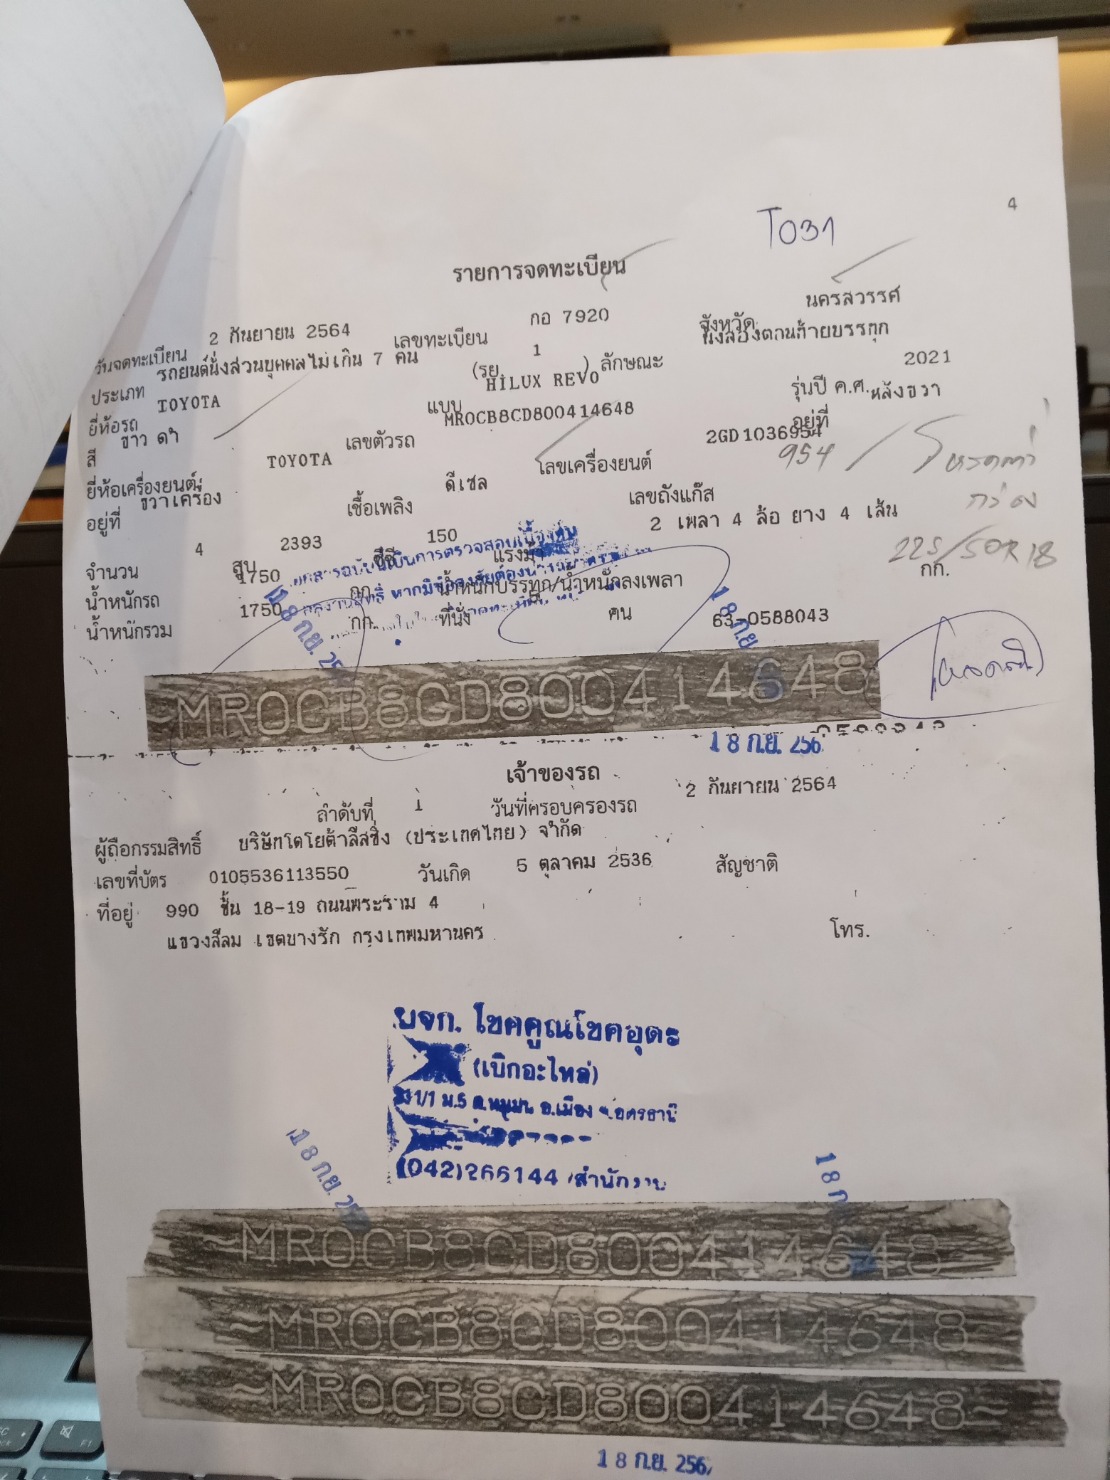 4
T031
รายการจดทะเบียน
วันจดทะเบียน 2 กันยายน 2564 เลขทะเบียน กอ 7920 จังหวัด นครสวรรค์
ประเภท รถยนต์นั่งส่วนบุคคลไม่เกิน 7 คน (รย. 1 ) ลักษณะ นั่งสองตอนท้ายบรรทุก
ยี่ห้อรถ TOYOTA แบบ HILUX REVO รุ่นปี ค.ศ. 2021
สี ขาว ดำ เลขตัวรถ MROCB8CD800414648 อยู่ที่ หลังขวา
ยี่ห้อเครื่องยนต์ TOYOTA เลขเครื่องยนต์ 2GD1036954
954
อยู่ที่ ขวาเครื่อง เชื้อเพลิง ดีเซล เลขถังแก๊ส
จำนวน 4 สูบ 2393 ซีซี 150 แรงม้า 2 เพลา 4 ล้อ ยาง 4 เส้น
225/50R18
น้ำหนักรถ 1750 กก. น้ำหนักบรรทุก/น้ำหนักลงเพลา กก.
น้ำหนักรวม 1750 กก. ที่นั่ง คน 63-0588043
18 ก.ย.
18 ก.ย.
MROCB8CD800414648
18 ก.ย. 256
เจ้าของรถ
ลำดับที่ 1 วันที่ครอบครองรถ 2 กันยายน 2564
ผู้ถือกรรมสิทธิ์ บริษัทโตโยต้าลีสซิ่ง (ประเทศไทย) จำกัด
เลขที่บัตร 0105536113550 วันเกิด 5 ตุลาคม 2536 สัญชาติ
ที่อยู่ 990 ชั้น 18-19 ถนนพระราม 4
แขวงสีลม เขตบางรัก กรุงเทพมหานคร โทร.
หจก. โชคคูณโชคอุดร
(เบิกอะไหล่)
1/1 ม.5 อ.เมือง
(042)266144 สำนักงาน
18 ก.ย.
18 ก
MROCB8CD800414648
MROCB8CD800414648
MROCB8CD800414648
18 ก.ย. 256
F1